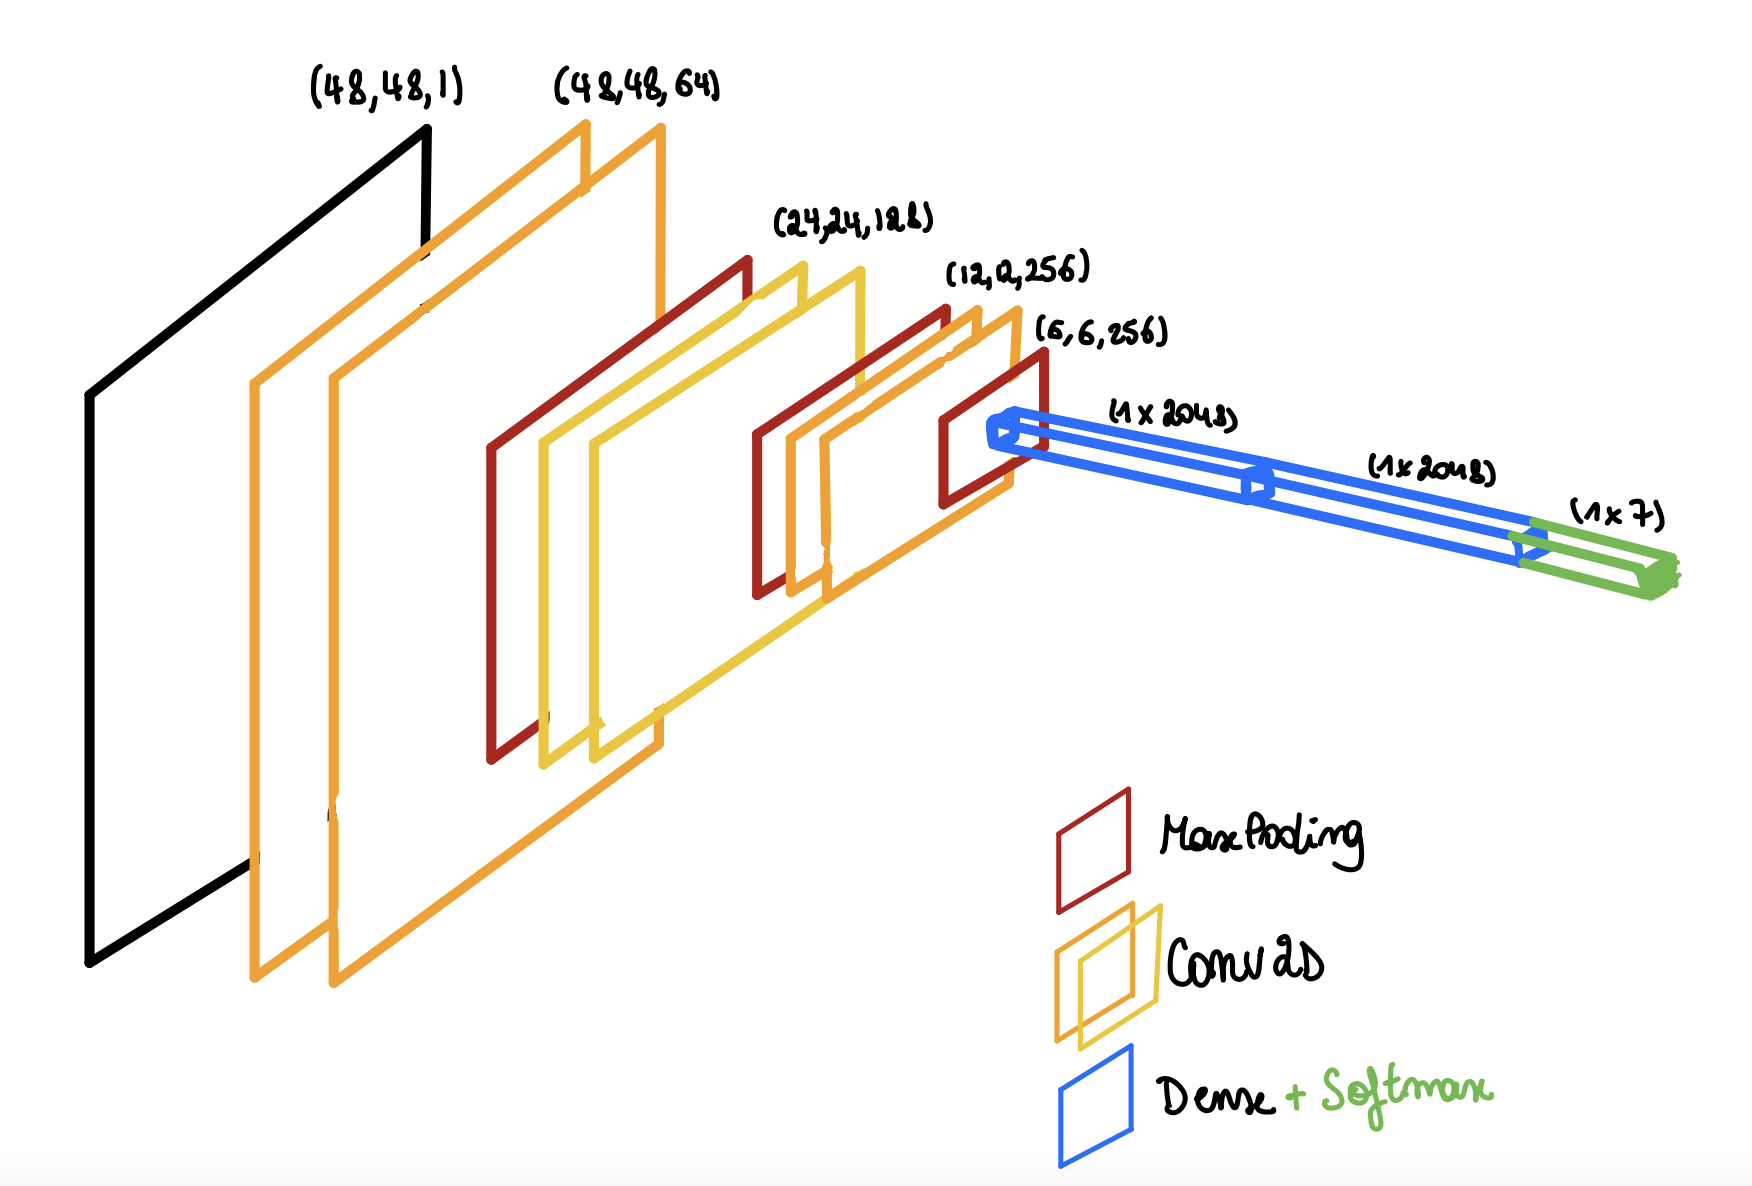 (48,48,1)
(48,48,64)
(24,24,128)
(12,12,256)
(6,6,256)
(1x2048)
(1x2048)
(1x7)
MaxPooling
Conv2D
Dense + Softmax